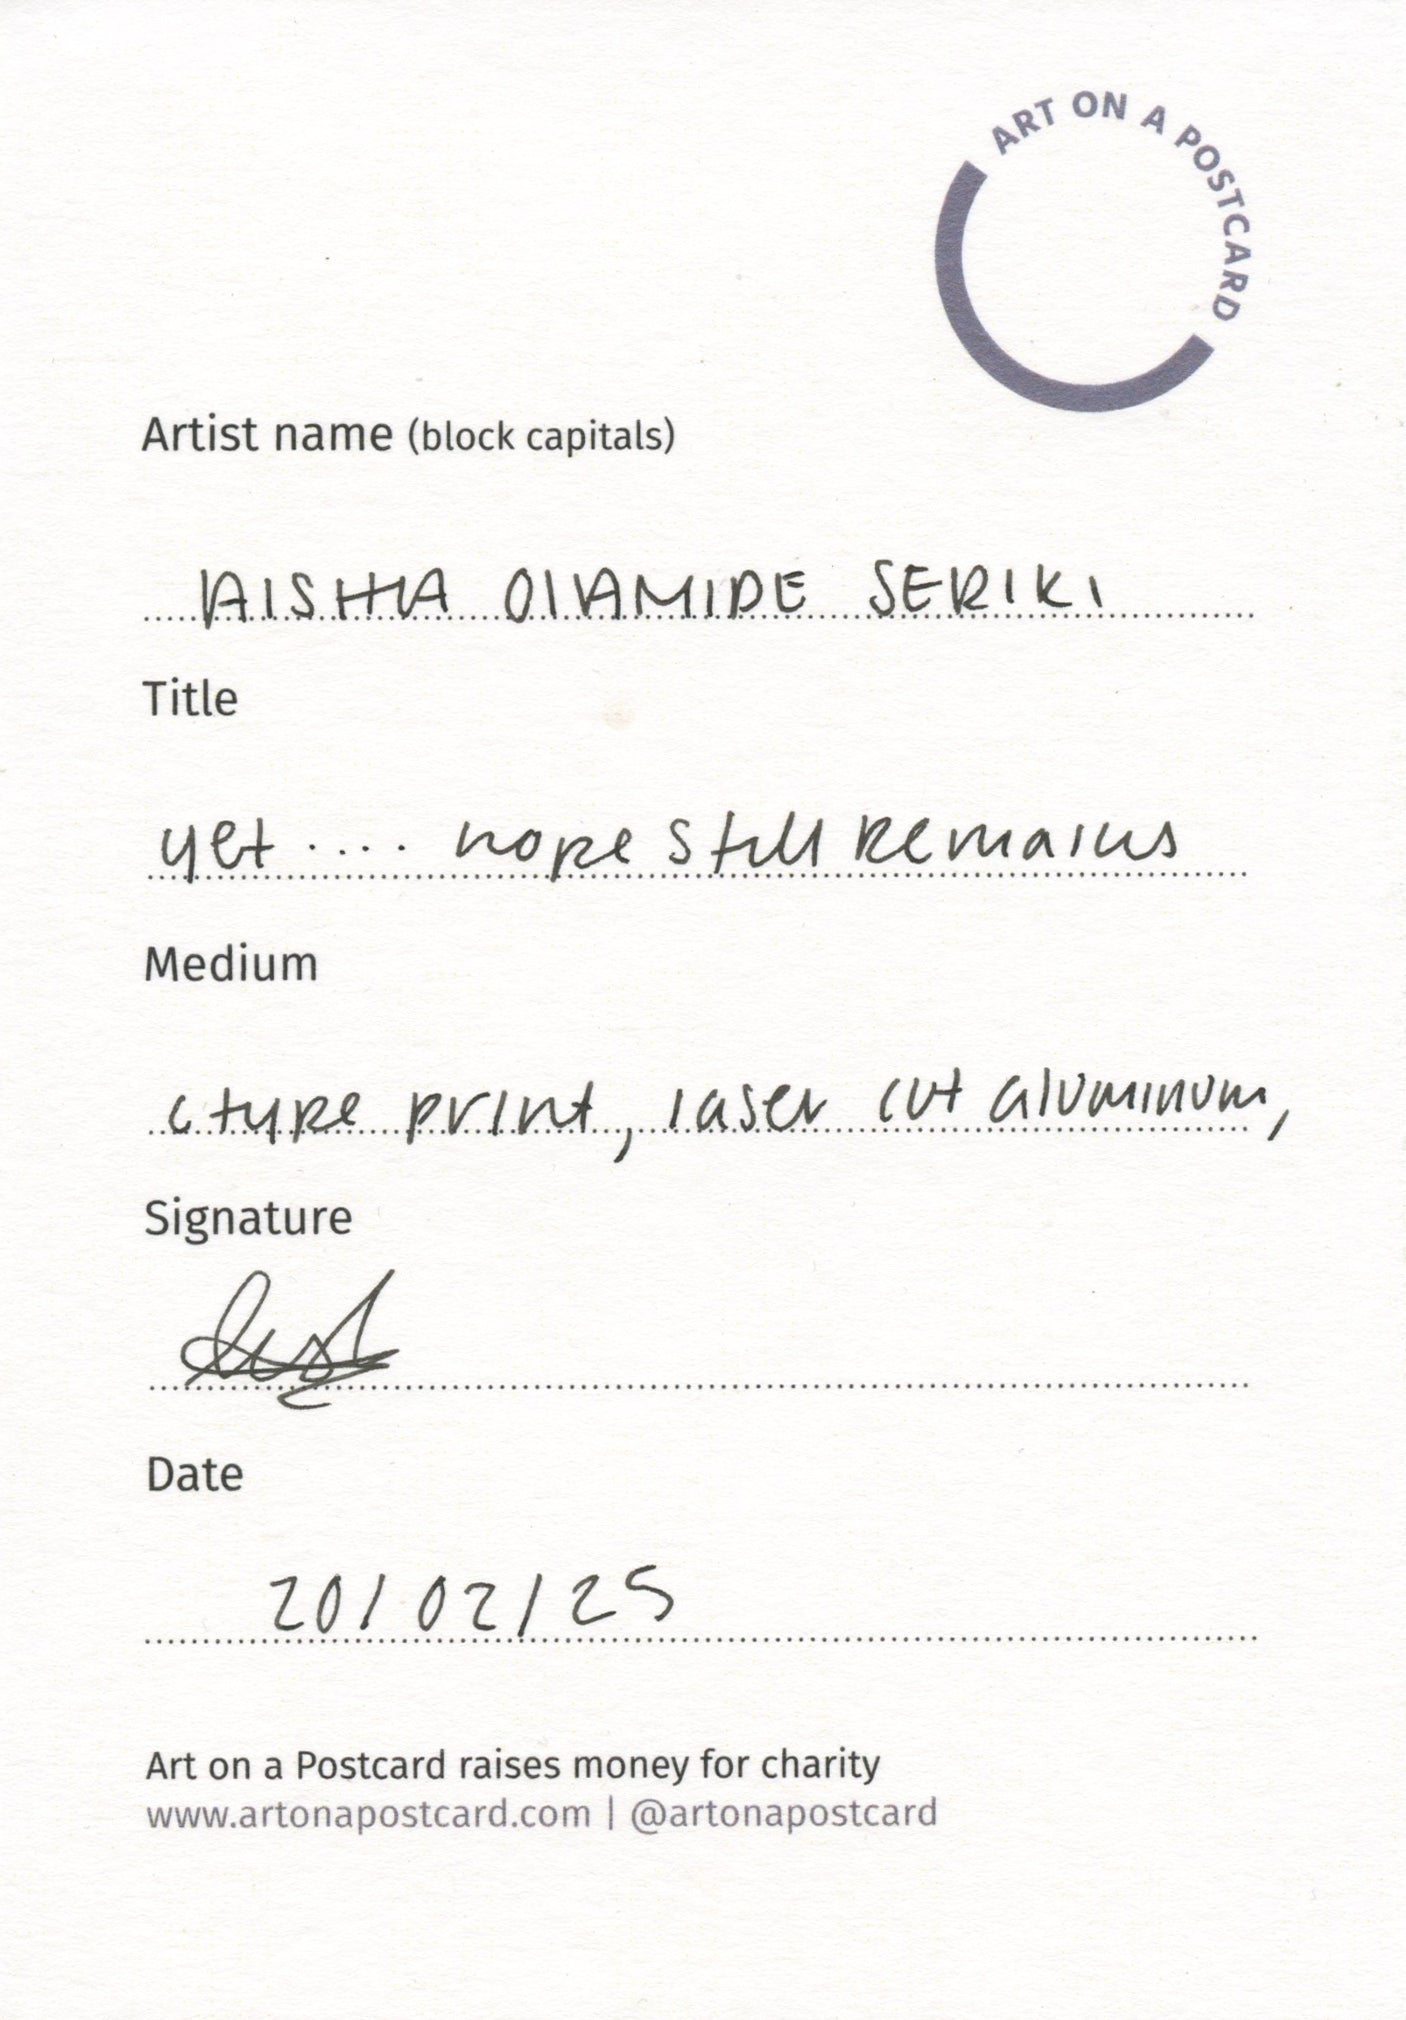 ART ON A POSTCARD
Artist name (block capitals)
AISHA OLAMIDE SERIKI
Title
yet .... hope still Remains
Medium
c type print, laser cut aluminum,
Signature
Date
20/02/25
Art on a Postcard raises money for charity
www.artonapostcard.com | @artonapostcard